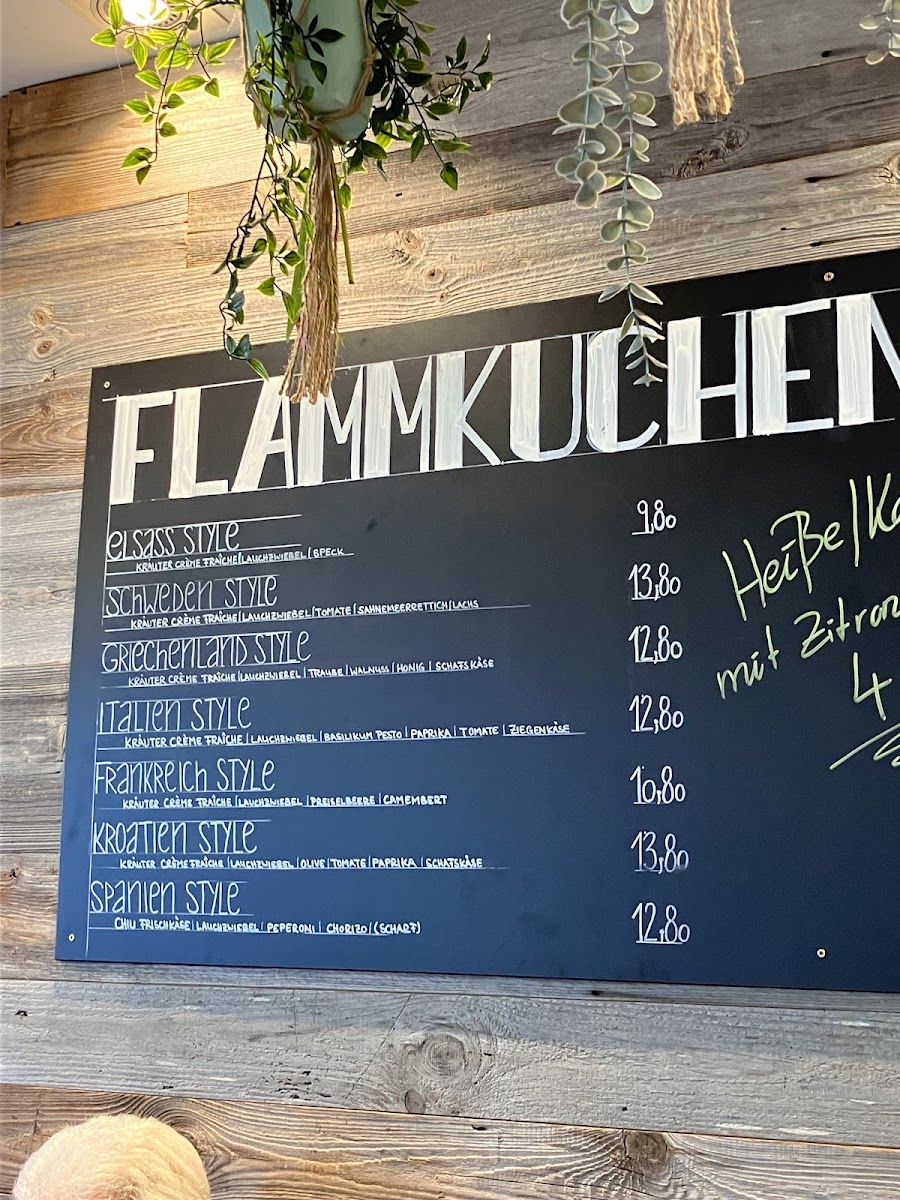 FLAMMKUCHEN
ELSASS STYLE 9,80
KRÄUTER CRÈME FRAÎCHE|LAUCHZWIEBEL|SPECK
SCHWEDEN STYLE 13,80
KRÄUTER CRÈME FRAÎCHE|LAUCHZWIEBEL|TOMATE|SAHNEMEERRETTICH|LACHS
GRIECHENLAND STYLE 12,80
KRÄUTER CRÈME FRAÎCHE|LAUCHZWIEBEL|TRAUBE|WALNUSS|HONIG|SCHAFSKÄSE
ITALIEN STYLE 12,80
KRÄUTER CRÈME FRAÎCHE|LAUCHZWIEBEL|BASILIKUM PESTO|PAPRIKA|TOMATE|ZIEGENKÄSE
FRANKREICH STYLE 10,80
KRÄUTER CRÈME FRAÎCHE|LAUCHZWIEBEL|PREISELBEERE|CAMEMBERT
KROATIEN STYLE 13,80
KRÄUTER CRÈME FRAÎCHE|LAUCHZWIEBEL|OLIVE|TOMATE|PAPRIKA|SCHAFSKÄSE
SPANIEN STYLE 12,80
CHILI FRISCHKÄSE|LAUCHZWIEBEL|PEPERONI|CHORIZO|(SCHARF)
Heiße/
mit
4